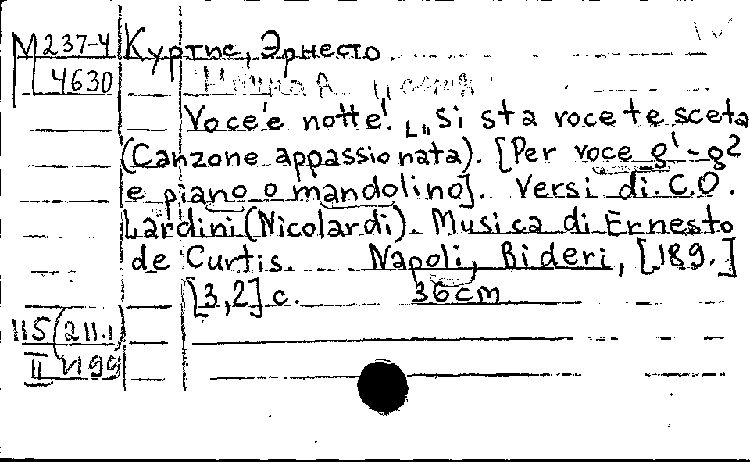 М 237-4 Куртис, Эрнесто
4630
Voce'e notte! „si sta voce te sceta
(Canzone appassionata). [Per voce g¹-g²
e piano o mandolino]. Versi di C.O.
Lardini (Nicolardi). Musica di Ernesto
de Curtis. Napoli, Bideri, [189.]
[3,2] с. 36 cm
115 (211.1)
II И 99